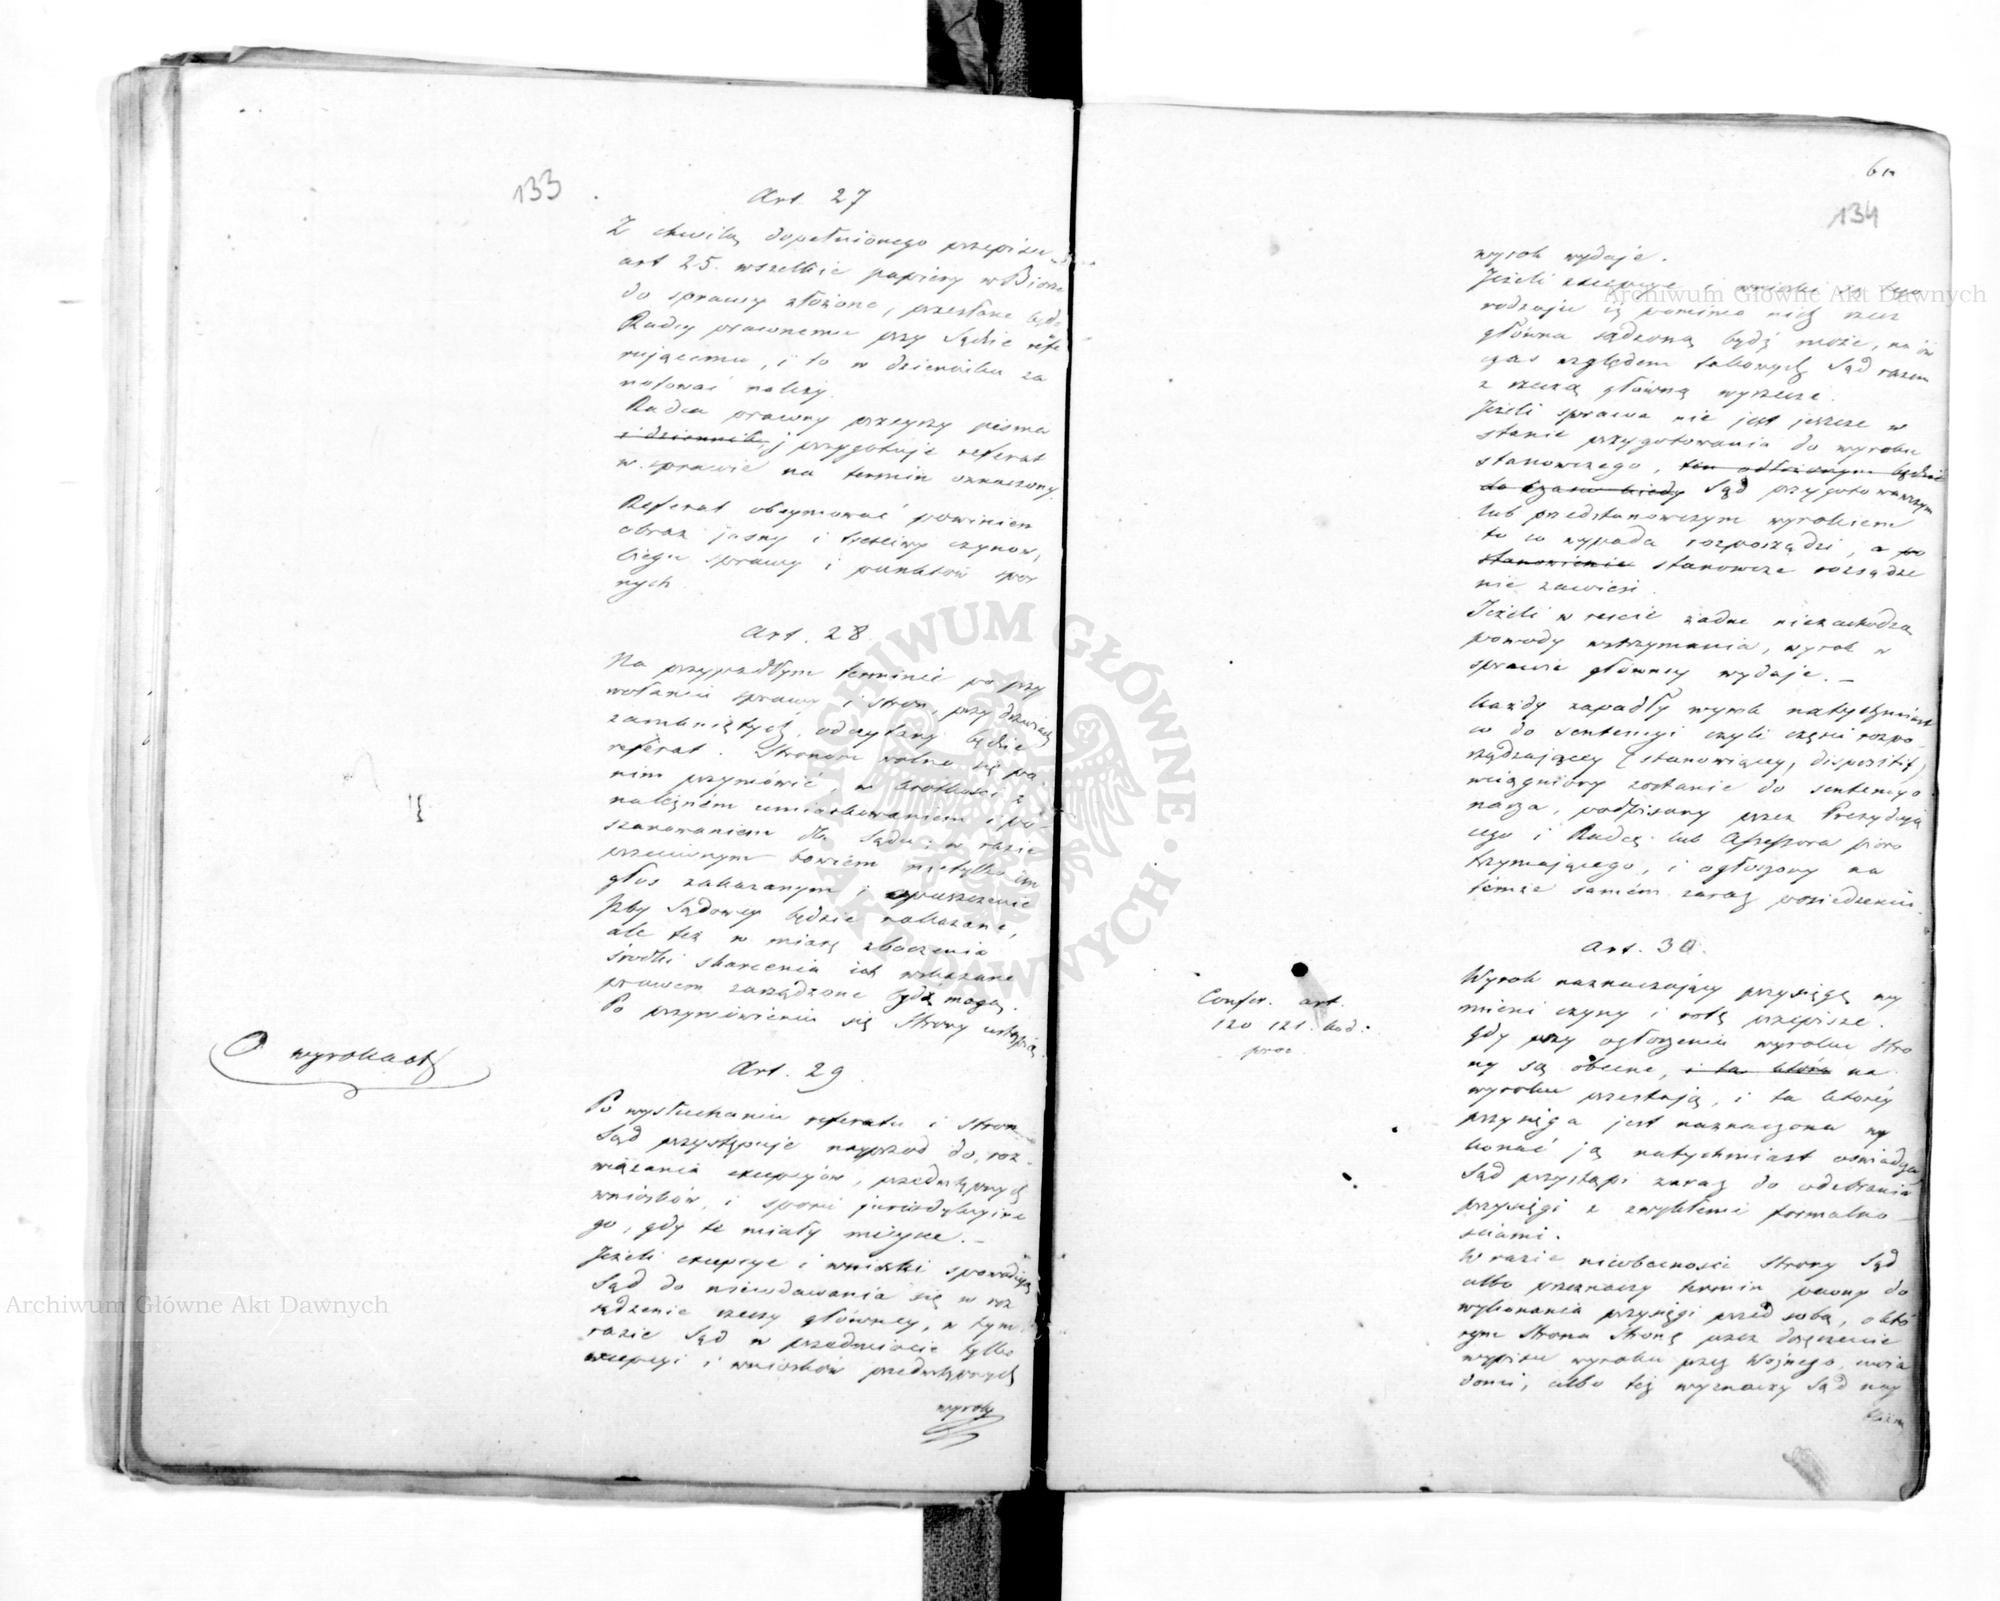 133
Art. 27
Z chwilą dopełnionego przepisu
art 25. wszelkie papiery w Biorze
do sprawy złożone, przesłane będą
Radcy prawnemu przy Sądzie refe
rującemu, i to w dzienniku za
notować należy.
Radca prawny przeyrzy pisma
i dziennik, i przygotuje referat
w sprawie na termin oznaczony.
Referat obeymować powinien
obraz jasny i treściwy czynów,
biegu sprawy i punktów spor
nych.
Art. 28
Na przypadłym terminie po przy
wołaniu sprawy i stron, przy drzwiach
zamkniętych, odczytany będzie
referat. Stronom wolno się po
nim przymówić, w krótkości z
należnem umiarkowaniem i po-
szanowaniem dla Sądu; w razie
przeciwnym bowiem nietylko im
głos zakazanym i opuszczenie
Izby Sądowey będzie nakazane,
ale też w miarę zboczenia
środki skarcenia ich wskazane
prawem zarządzone bydź mogą.
Po przymówieniu się Strony ustąpią.
O wyrokach
Art. 29
Po wysłuchaniu referatu i Stron
Sąd przystępuje nayprzód do roz-
wiązania excepcyów, przedwstępnych
wniosków, i sporu jurisdykcyine
go, gdy te miały mieysce. —
Jeżeli excepcye i wnioski spowodują
Sąd do niewdawania się w roz
sądzenie rzeczy głównéy, w tym
razie Sąd w przedmiocie tylko
excepcyi i wniosków przedwstępnych
wyrok
134
wyrok wydaje.
Jeżeli excepcye i wnioski są tego
rodzaju iż pomimo nich rzecz
główna sądzoną bydź może, na ów
czas względem takowych Sąd razem
z rzeczą główną wyrzecze.
Jeżeli sprawa nie jest jeszcze w
stanie przygotowania do wyroku
stanowczego, tém odłożonym będzie
do czasu kiedy Sąd przygotowawczym
lub przedstanowczym wyrokiem
to co wypada rozporządzi, a po
stanowienie stanowcze rozsądze
nie zawiesi.
Jeżeli w reście żadne niezachodzą
powody wstrzymania, wyrok w
sprawie główney wydaje. —
Każdy zapadły wyrok natychmiast
co do sentencyi czyli części rozpo-
rządzającey (stanowiącey, dispositif)
wciągniony zostanie do sentencyo
narza, podpisany przez Prezydują
cego i Radcę lub Assessora pióro
trzymającego, i ogłoszony na
témże samém zaraz posiedzeniu.
Art. 30.
Confer. art.
120 121. kod:
proc.
Wyrok naznaczający przysięgę wy
mieni czyny i rotę przepisze.
Gdy przy ogłoszeniu wyroku Stro
ny są obecne, i ta która na
wyroku przestają, i ta którey
przysięga jest naznaczona wy
konać ją natychmiast oświadcza
Sąd przystąpi zaraz do odebrania
przysięgi z zwykłemi formalno-
ściami.
W razie nieobecności Strony Sąd
albo przeznaczy termin pewny do
wykonania przysięgi przed sobą, o któ
rym Strona Stronę przez doręczenie
wypisu wyroku przez Woźnego uwia
domi, albo téż wyznaczy Sąd nay
bliższy
Archiwum Główne Akt Dawnych
Archiwum Główne Akt Dawnych
ARCHIWUM GŁÓWNE · AKT DAWNYCH ·